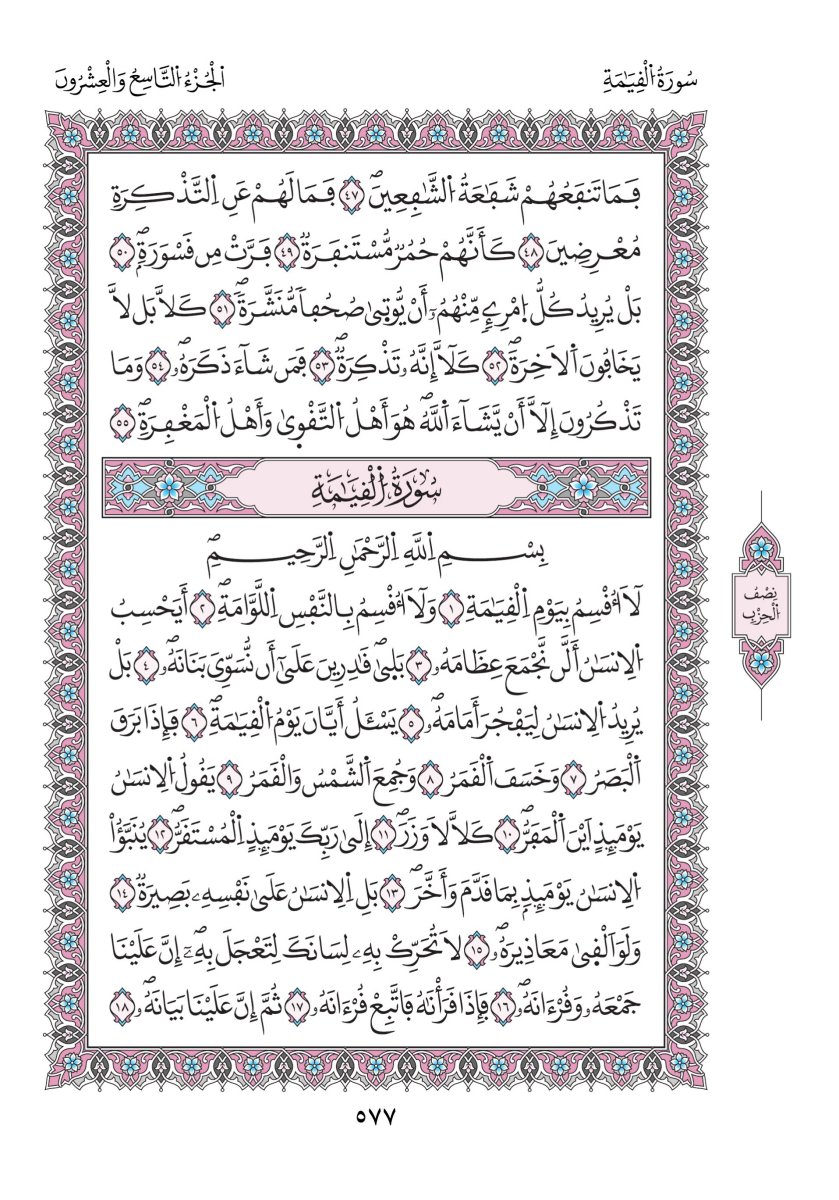 سُورَةُ الْقِيَٰمَةِ
الْجُزْءُ التَّاسِعُ وَالْعِشْرُونَ
فَمَا تَنفَعُهُمْ شَفَٰعَةُ الشَّٰفِعِينَۖ ٤٧ فَمَا لَهُمْ عَنِ التَّذْكِرَةِ
مُعْرِضِينَ ٤٨ كَأَنَّهُمْ حُمُرٞ مُّسْتَنفَرَةٞ ٤٩ فَرَّتْ مِن قَسْوَرَةِۢۖ ٥٠
بَلْ يُرِيدُ كُلُّ امْرِےٕٖ مِّنْهُمُۥٓ أَنْ يُّوتۭىٰ صُحُفاٗ مُّنَشَّرَةٗۖ ٥١ كَلَّا بَل لَّا
يَخَافُونَ اَلَاخِرَةَۖ ٥٢ كَلَّآ إِنَّهُۥ تَذْكِرَةٞۖ ٥٣ فَمَن شَآءَ ذَكَرَهُۥۖ ٥٤ وَمَا
تَذْكُرُونَ إِلَّآ أَنْ يَّشَآءَ اَللَّهُۖ هُوَ أَهْلُ التَّقْوۭىٰ وَأَهْلُ الْمَغْفِرَةِۖ ٥٥
سُورَةُ الْقِيَٰمَةِ
بِسْمِ اِللَّهِ اِلرَّحْمَٰنِ اِلرَّحِيمِ
لَآ أُقْسِمُ بِيَوْمِ اِلْقِيَٰمَةِ ١ وَلَآ أُقْسِمُ بِالنَّفْسِ اِللَّوَّامَةِۖ ٢ أَيَحْسِبُ
اُلِانسَٰنُ أَلَّن نَّجْمَعَ عِظَامَهُۥۖ ٣ بَلۭىٰ قَٰدِرِينَ عَلَىٰٓ أَن نُّسَوِّيَ بَنَانَهُۥۖ ٤ بَلْ
يُرِيدُ اُلِانسَٰنُ لِيَفْجُرَ أَمَامَهُۥۖ ٥ يَسْـَٔلُ أَيَّانَ يَوْمُ اُلْقِيَٰمَةِۖ ٦ فَإِذَا بَرَقَ
اَلْبَصَرُ ٧ وَخَسَفَ اَلْقَمَرُ ٨ وَجُمِعَ اَلشَّمْسُ وَالْقَمَرُ ٩ يَقُولُ اُلِانسَٰنُ
يَوْمَئِذٍ اَيْنَ اَلْمَفَرُّۖ ١٠ كَلَّا لَا وَزَرَۖ ١١ إِلَىٰ رَبِّكَ يَوْمَئِذٍ اِلْمُسْتَقَرُّۖ ١٢ يُنَبَّؤُاْ
اُلِانسَٰنُ يَوْمَئِذِۢ بِمَا قَدَّمَ وَأَخَّرَۖ ١٣ بَلِ اِلِانسَٰنُ عَلَىٰ نَفْسِهِۦ بَصِيرَةٞ ١٤
وَلَوَ اَلْقۭىٰ مَعَاذِيرَهُۥۖ ١٥ لَا تُحَرِّكْ بِهِۦ لِسَانَكَ لِتَعْجَلَ بِهِۦٓۖ إِنَّ عَلَيْنَا
جَمْعَهُۥ وَقُرْءَانَهُۥۖ ١٦ فَإِذَا قَرَأْنَٰهُ فَاتَّبِعْ قُرْءَانَهُۥ ١٧ ثُمَّ إِنَّ عَلَيْنَا بَيَانَهُۥۖ ١٨
نِصْفُ
الْحِزْبِ
٥٧٧